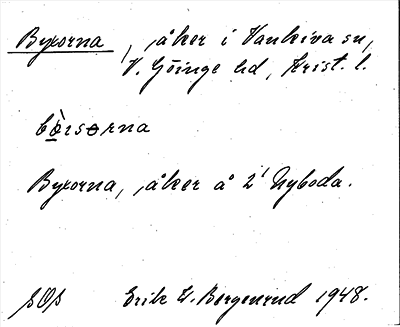 Byxorna, åker i Vankiva sn,
V. Göinge hd, Krist. l.
bò̱rsorna
Byxorna, åker å 2 Nyboda.
SOS Erik W. Bergenrud 1948.